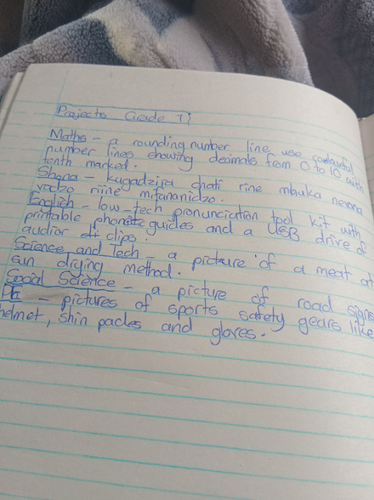 Projects Grade 7
Maths - a rounding number line use
number lines showing decimals from 0 to 10 with
tenth marked.
Shona - kugadzira chati rine mhuka nevana
vadzo riine mifananidzo.
English - low-tech pronunciation tool kit with
printable phonetic guides and a USB drive of
audior clips.
Science and Tech - a picture of a meat at
sun drying method.
Social Science - a picture of road signs
- pictures of sports safety gears like
helmet, shin packs and gloves.